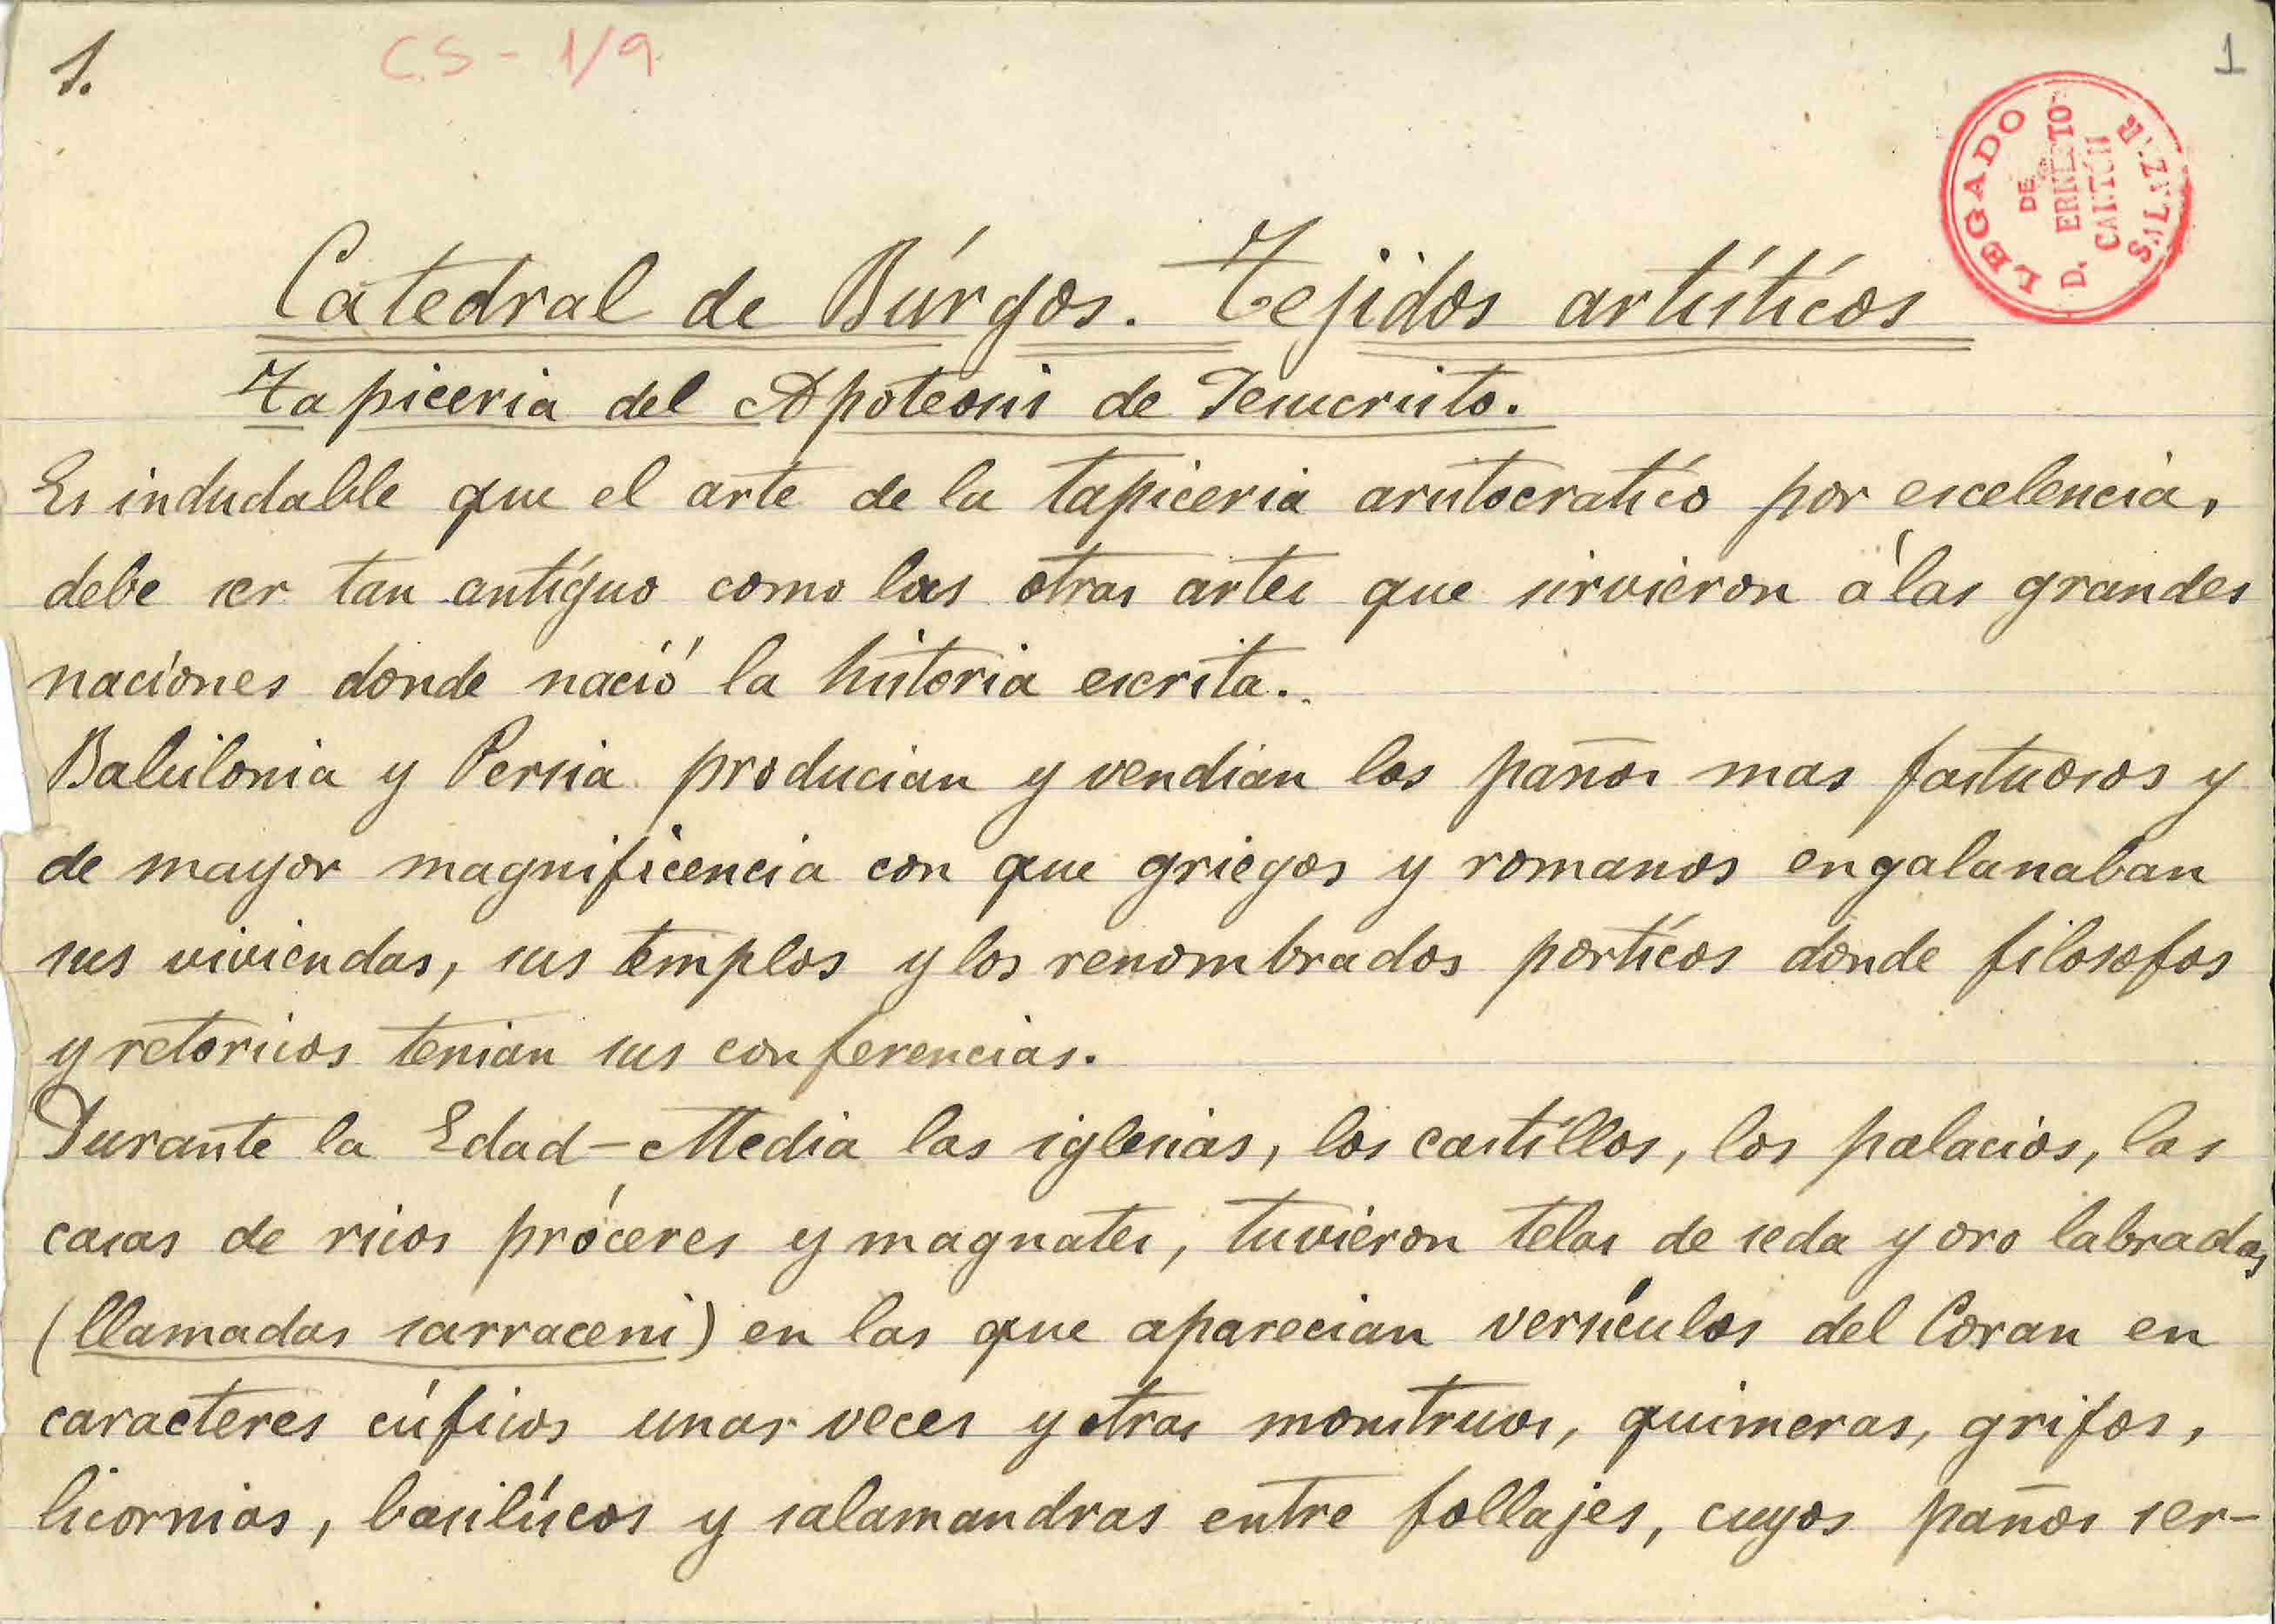 1.
C.S - 1/9
1
LEGADO
DE
D. ERNESTO
CANTÓN
SALAZAR
Catedral de Búrgos. Tejidos artísticos
Tapiceria del Apoteosis de Jesucristo.
Es indudable que el arte de la tapiceria aristocratico por escelencia,
debe ser tan antíguo como las otras artes que sirvieron á las grandes
naciones donde nació la historia escrita.
Babilonia y Persia producian y vendian los paños mas fastuosos y
de mayor magnificencia con que griegos y romanos engalanaban
sus viviendas, sus templos y los renombrados porticos donde filosofos
y retoricos tenian sus conferencias.
Durante la Edad-Media las iglesias, los castillos, los palacios, las
casas de ricos próceres y magnates, tuvieron telas de seda y oro labradas
(llamadas sarraceni) en las que aparecian versículos del Coran en
caracteres cúficos unas veces y otras monstruos, quimeras, grifos,
licornias, basilíscos y salamandras entre follajes, cuyos paños ser-